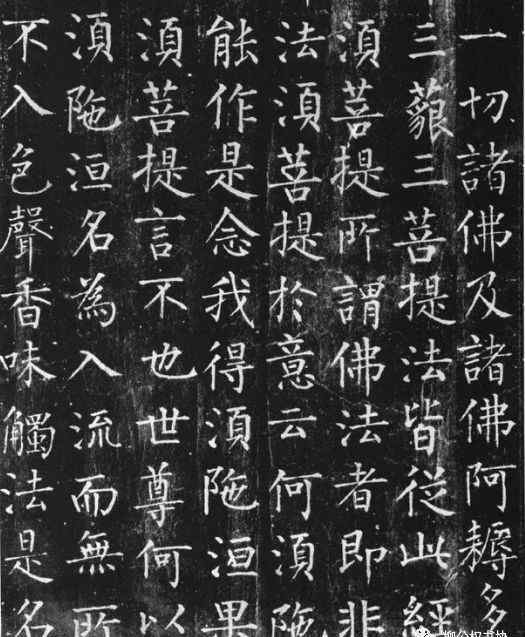 一切諸佛及諸佛阿耨多
三藐三菩提法皆從此經
須菩提所謂佛法者即非
法須菩提於意云何須陁
能作是念我得須陁洹果
須菩提言不也世尊何以
須陁洹名為入流而無所
不入色聲香味觸法是名